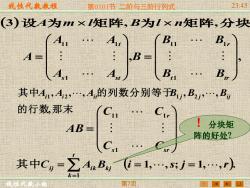 线性代数教程 第0101节 二阶与三阶行列式 23:43
(3) 设A为m×l矩阵,B为l×n矩阵,分块
A = ( A11 ⋯ A1r ⋮ ⋮ As1 ⋯ Ast ), B = ( B11 ⋯ B1r ⋮ ⋮ Bt1 ⋯ Btr ),
其中Ai1, Ai2, ⋯, Aij的列数分别等于B1j, B2j, ⋯, Bij
的行数,那末
AB = ( C11 ⋯ C1r ⋮ ⋮ Cs1 ⋯ Csr )
! 分块矩
阵的好处?
其中Cij = ∑ t k=1 Aik Bkj (i = 1, ⋯, s; j = 1, ⋯, r).
第7页